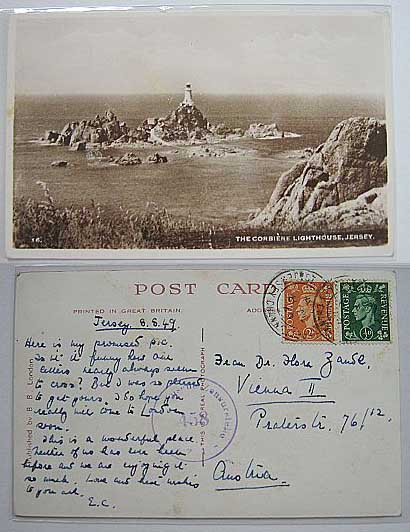 16.
THE CORBIÈRE LIGHTHOUSE, JERSEY.
POST CARD
PRINTED IN GREAT BRITAIN.
Jersey. 8.8.49.
Here is my promised pic.
Isn't it funny how our
letters nearly always seem
to cross? But I was so pleased
to get yours. I do hope you
really will come to London
soon.
This is a wonderful place.
Neither of us has ever been
before and we are enjoying it
so much. Love and best wishes
to you all.
E.C.
Published by B. B. London
THIS IS A REAL PHOTOGRAPH
POSTAGE REVENUE
POSTAGE REVENUE
Frau Dr. Flora Zande,
Vienna II
Praterstr. 76/12
Austria.